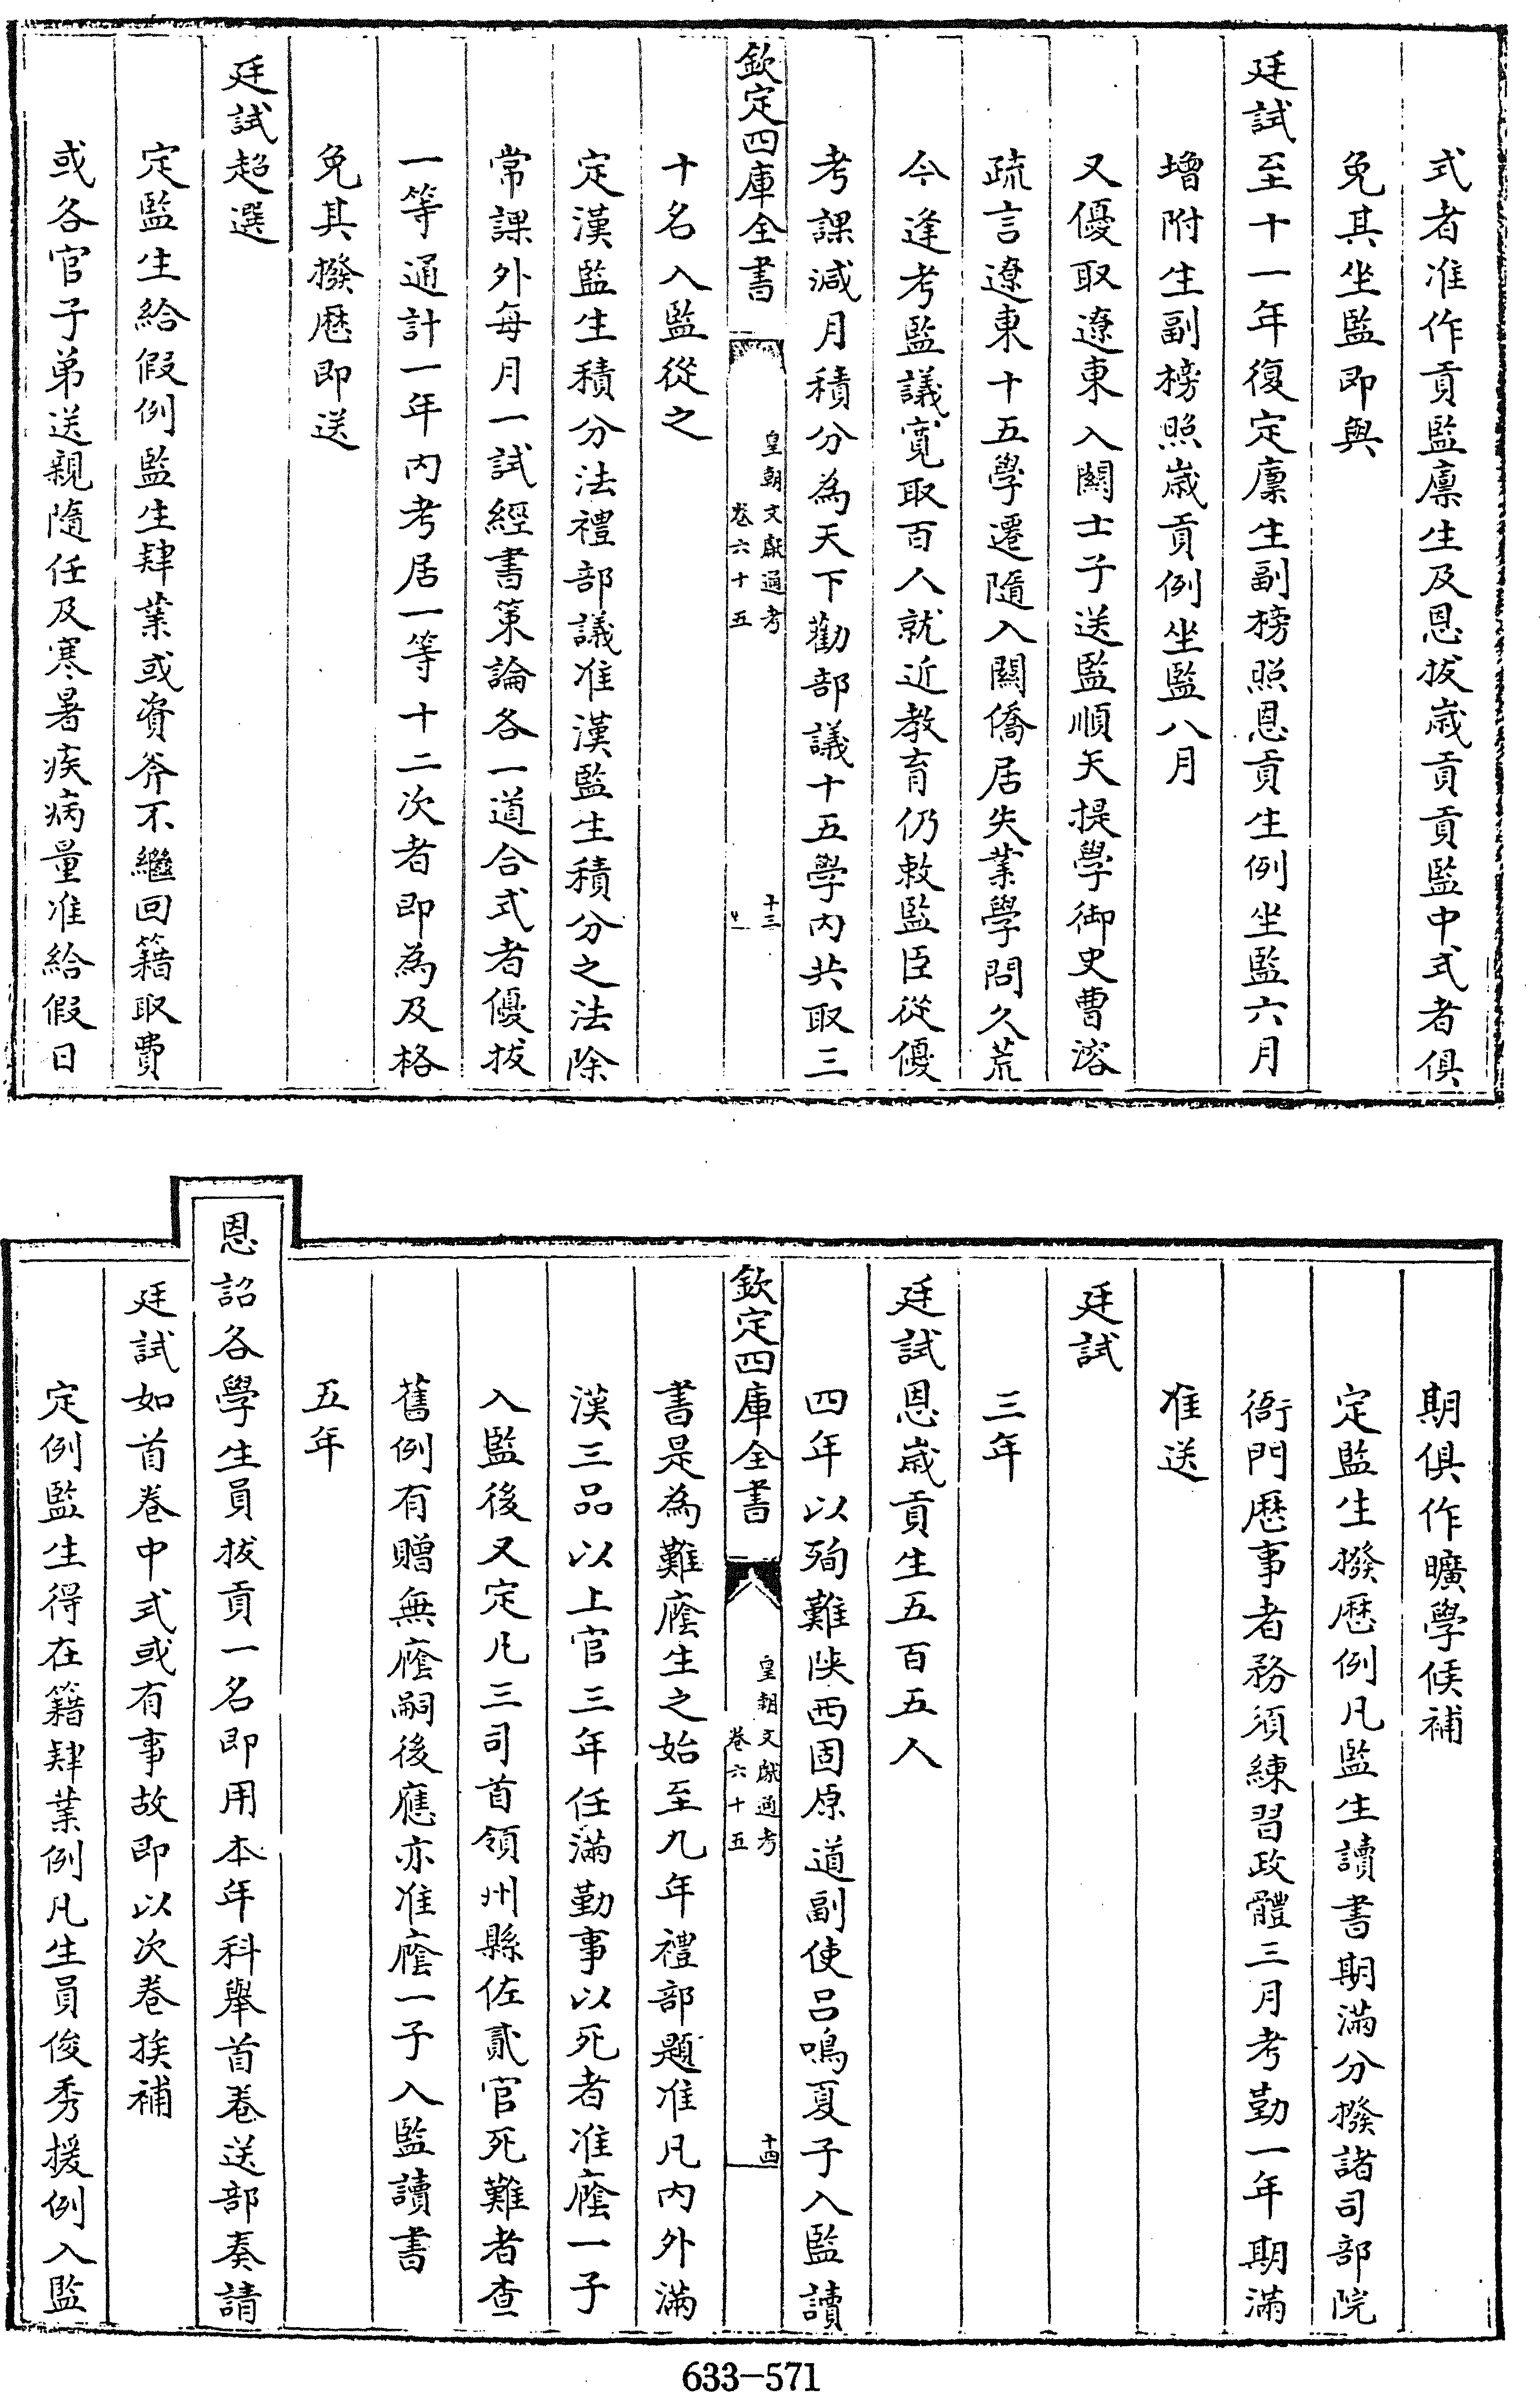 式者准作貢監廩生及恩拔歲貢貢監中式者俱
免其坐監即與
廷試至十一年復定廩生副榜照恩貢生例坐監六月
增附生副榜照歲貢例坐監八月
又優取遼東入關士子送監順天提學御史曹溶
疏言遼東十五學遷隨入關僑居失業學問久荒
今逢考監議寬取百人就近教育仍敕監臣從優
考課減月積分為天下勸部議十五學內共取三
欽定四庫全書
皇朝文獻通考
卷六十五
十三
十名入監從之
定漢監生積分法禮部議准漢監生積分之法除
常課外每月一試經書策論各一道合式者優拔
一等通計一年內考居一等十二次者即為及格
免其撥歷即送
廷試超選
定監生給假例監生肄業或資斧不繼回籍取費
或各官子弟送親隨任及寒暑疾病量准給假日
期俱作曠學候補
定監生撥歷例凡監生讀書期滿分撥諸司部院
衙門歷事者務須練習政體三月考勤一年期滿
准送
廷試
三年
廷試恩歲貢生五百五人
四年以殉難陝西固原道副使呂鳴夏子入監讀
欽定四庫全書
皇朝文獻通考
卷六十五
十四
書是為難廕生之始至九年禮部題准凡內外滿
漢三品以上官三年任滿勤事以死者准廕一子
入監後又定凡三司首領州縣佐貳官死難者查
舊例有贈無廕嗣後應亦准廕一子入監讀書
五年
恩詔各學生員拔貢一名即用本年科舉首卷送部奏請
廷試如首卷中式或有事故即以次卷挨補
定例監生得在籍肄業例凡生員俊秀援例入監
633-571